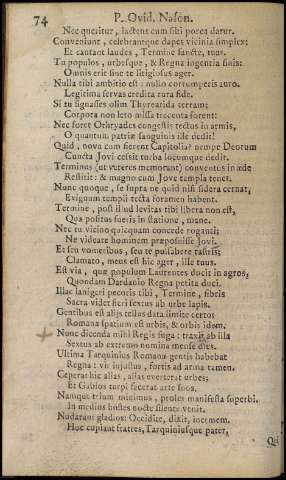 74
P. Ovid. Nason.
Nec queritur, lactens cum sibi porca datur.
Conveniunt, celebrantque dapes vicinia simplex;
Et cantant laudes, Termine sancte, tuas.
Tu populos, urbesque, & Regna ingentia finis:
Omnis erit sine te litigiosus ager.
Nulla tibi ambitio est: nullo corrumperis auro.
Legitima servas credita rura fide.
Si tu signasses olim Thyreatida terram;
Corpora non leto missa trecenta forent:
Nec foret Othryades congestis tectus in armis,
O quantum patriæ sanguinis ille dedit!
Quid, nova cum fierent Capitolia? nempe Deorum
Cuncta Jovi cessit turba locumque dedit.
Terminus (ut veteres memorant) conventus in æde
Restitit: & magno cum Jove templa tenet.
Nunc quoque, se supra ne quid nisi sidera cernat,
Exiguum templi tecta foramen habent.
Termine, post illud levitas tibi libera non est,
Qua positus fueris in statione, mane.
Nec tu vicino quicquam concede roganti;
Ne videare hominem præposuisse Jovi.
Et seu vomeribus, seu te pulsabere rastris;
Clamato, meus est hic ager, ille tuus.
Est via, quæ populum Laurentes ducit in agros,
Quondam Dardanio Regna petita duci.
Illac lanigeri pecoris tibi, Termine, fibris
Sacra videt fieri sextus ab urbe lapis.
Gentibus est aliis tellus data limite certo:
Romanæ spatium est urbis, & orbis idem.
Nunc dicenda mihi Regis fuga: traxit ab illa
Sextus ab extremo nomina mense dies.
Ultima Tarquinius Romanæ gentis habebat
Regna: vir injustus, fortis ad arma tamen.
Ceperat hic alias, alias everterat urbes;
Et Gabios turpi fecerat arte suos.
Namque trium minimus, proles manifesta superbi,
In medios hostes nocte silente venit.
Nudarant gladios: Occidite, dixit, inermem.
Hoc cupiant fratres, Tarquiniusque pater,
Qui